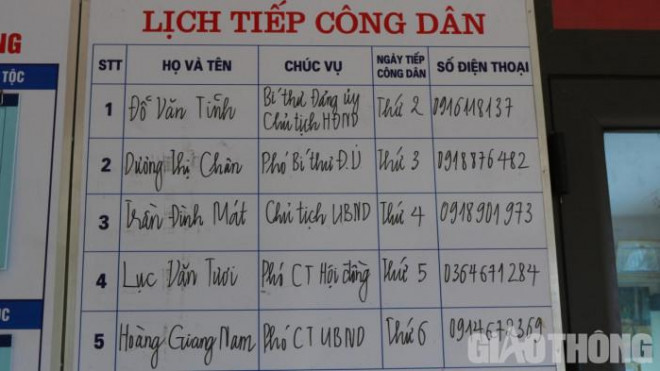 LỊCH TIẾP CÔNG DÂN
NG
TỘC
STT HỌ VÀ TÊN CHỨC VỤ NGÀY TIẾP CÔNG DÂN SỐ ĐIỆN THOẠI
1 Đỗ Văn Tĩnh Bí thư Đảng ủy Chủ tịch HĐND Thứ 2 0916118137
2 Dương Thị Chân Phó Bí thư Đ.U Thứ 3 0918876482
3 Trần Đình Mát Chủ tịch UBND Thứ 4 0918901973
4 Lục Văn Tươi Phó CT Hội đồng Thứ 5 0364671284
5 Hoàng Giang Nam Phó CT UBND Thứ 6 0914672369
ỤC
GIAOTHÔNG